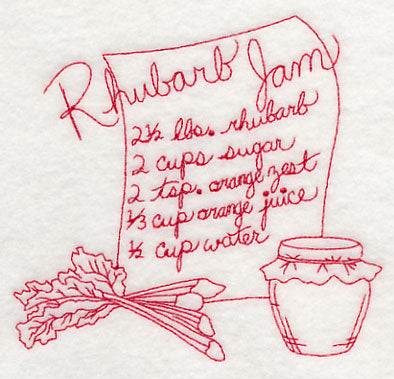 Rhubarb Jam
2½ lbs. rhubarb
2 cups sugar
2 tsp. orange zest
⅓ cup orange juice
½ cup water